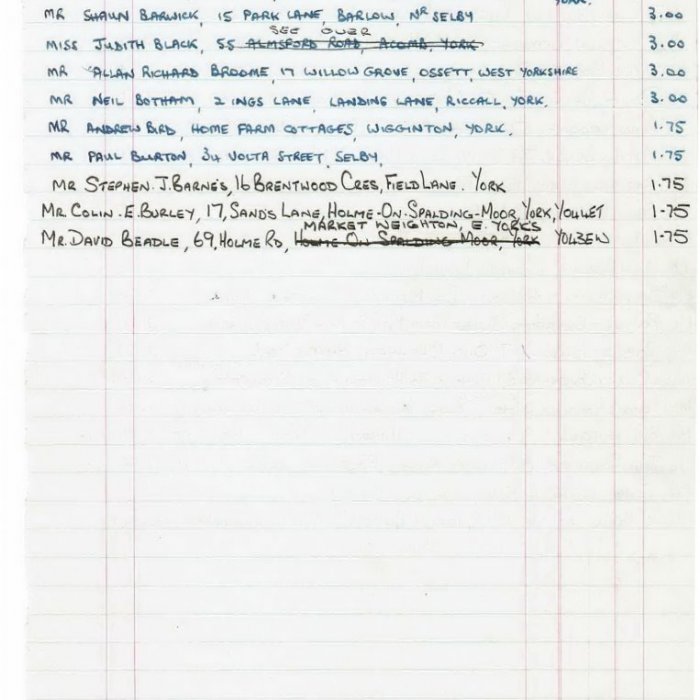 YORK.
MR SHAUN BARWICK, 15 PARK LANE, BARLOW, NR SELBY 3.00
SEE OVER
MISS JUDITH BLACK, 55 ALMSFORD ROAD, ACOMB, YORK 3.00
MR ALLAN RICHARD BROOME, 17 WILLOW GROVE, OSSETT, WEST YORKSHIRE 3.00
MR NEIL BOTHAM, 2 INGS LANE, LANDING LANE, RICCALL, YORK, 3.00
MR ANDREW BIRD, HOME FARM COTTAGES, WIGGINTON, YORK, 1.75
MR PAUL BURTON, 34 VOLTA STREET, SELBY, 1.75
MR STEPHEN. J. BARNES, 16 BRENTWOOD CRES, FIELD LANE. YORK 1-75
MR. COLIN. E. BURLEY, 17, SANDS LANE, HOLME-ON-SPALDING-MOOR, YORK, YO44ET 1-75
MARKET WEIGHTON, E. YORKS
MR. DAVID BEADLE, 69, HOLME RD, HOLME ON SPALDING MOOR, YORK YO43EW 1-75